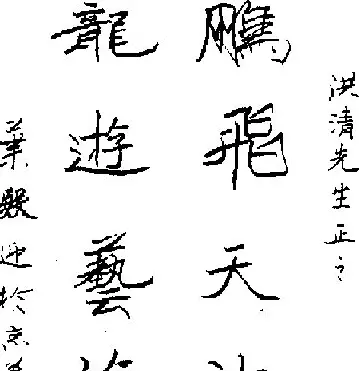 洪清先生正之
鵬飛天
龍遊藝
葉毅迎於京